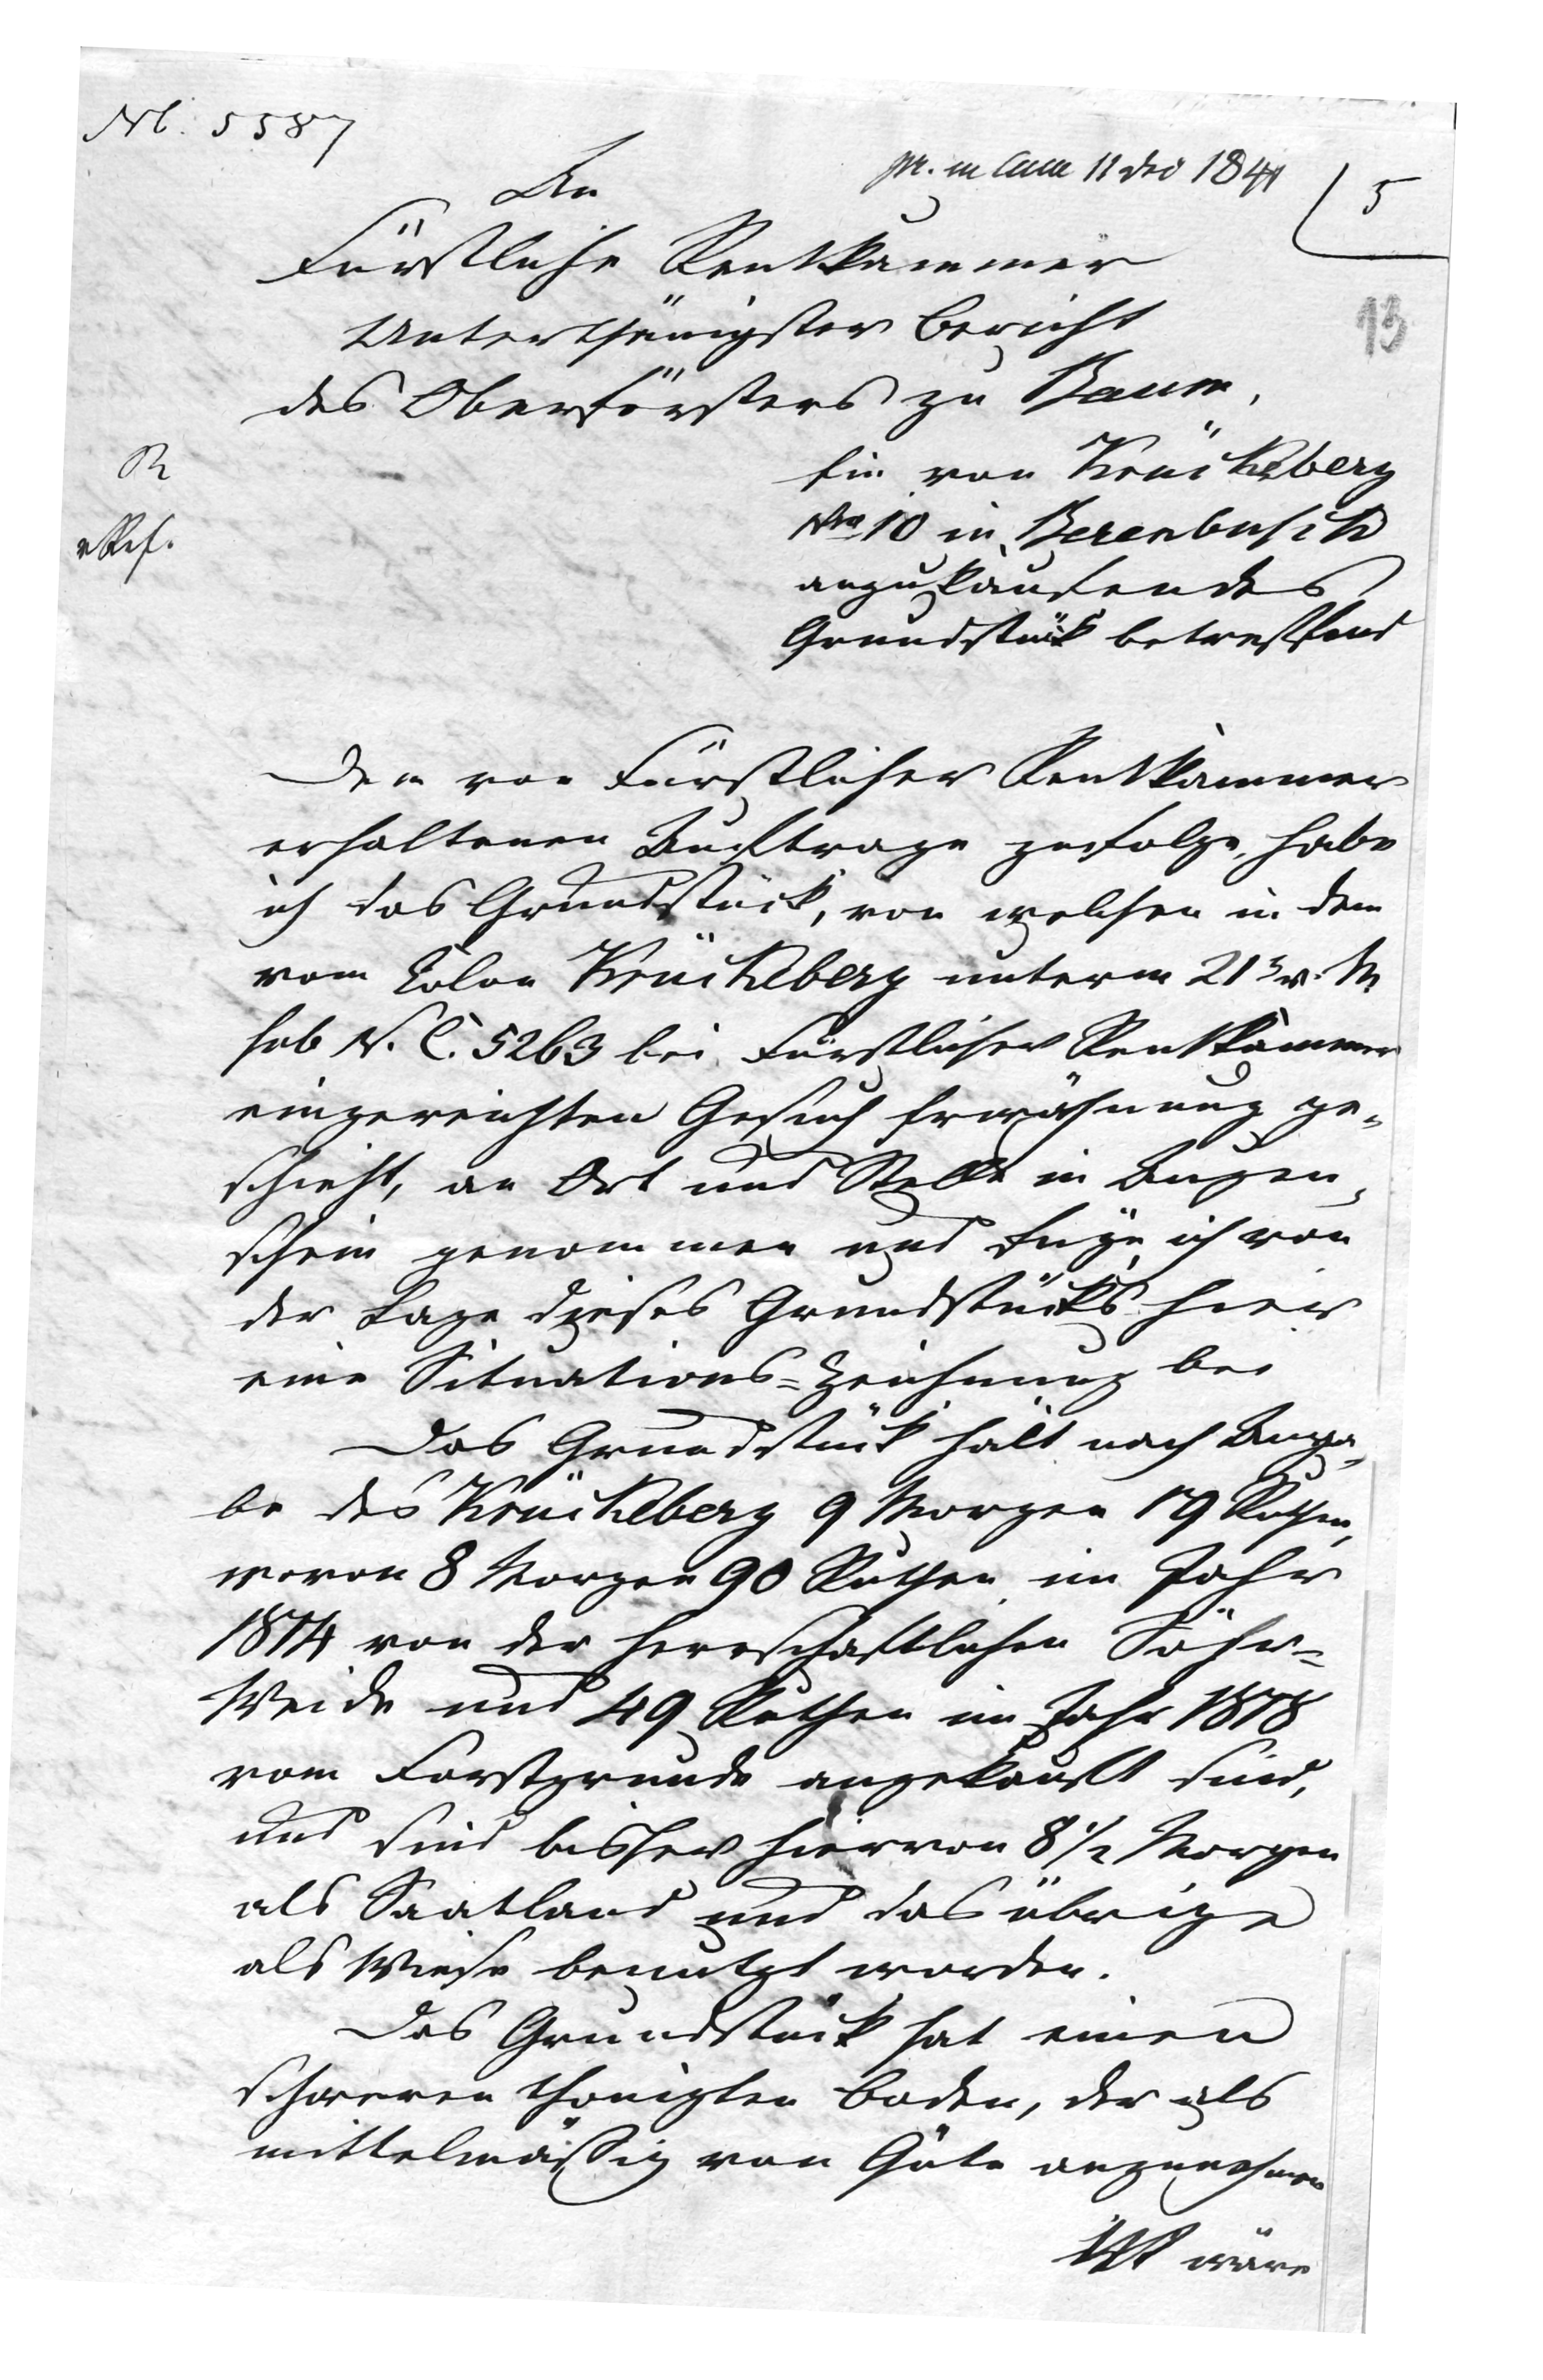 No. 5587
pr. in Cam 11 Dec 1841
5
An
Fürstliche Rentkammer
13
Unterthänigster Bericht
des Oberförsters zu Baum,
R
Ein von Krückeberg
Nro 10 in Berenbusch
anzukaufendes
Grundstück betreffend
Dem von Fürstlicher Rentkammer
erhaltenen Auftrage zufolge, habe
ich das Grundstück, von welchen in dem
vom Colon Krückeberg unterm 21 v. M
sub N. C. 5263 bei Fürstlicher Rentkammer
eingereichten Gesuch Erwähnung ge-
schieht, an Ort und Stelle in Augen-
schein genommen und füge ich von
der Lage dieses Grundstücks hier
eine Situations-Zeichnung bei
Das Grundstück hält nach Anga-
be des Krückeberg 9 Morgen 19 Ruthen,
wovon 8 Morgen 90 Ruthen im Jahr
1814 von der herrschaftlichen
Weide und 49 Ruthen im Jahr 1818
vom Forstgrunde angekauft sind,
und sind bisher hiervon 8 1/2 Morgen
als Saatland und das übrige
als Wiese benutzt worden.
Das Grundstück hat einen
schweren thonigten Boden, der als
mittelmäßig von Güte anzunehmen
ist wäre